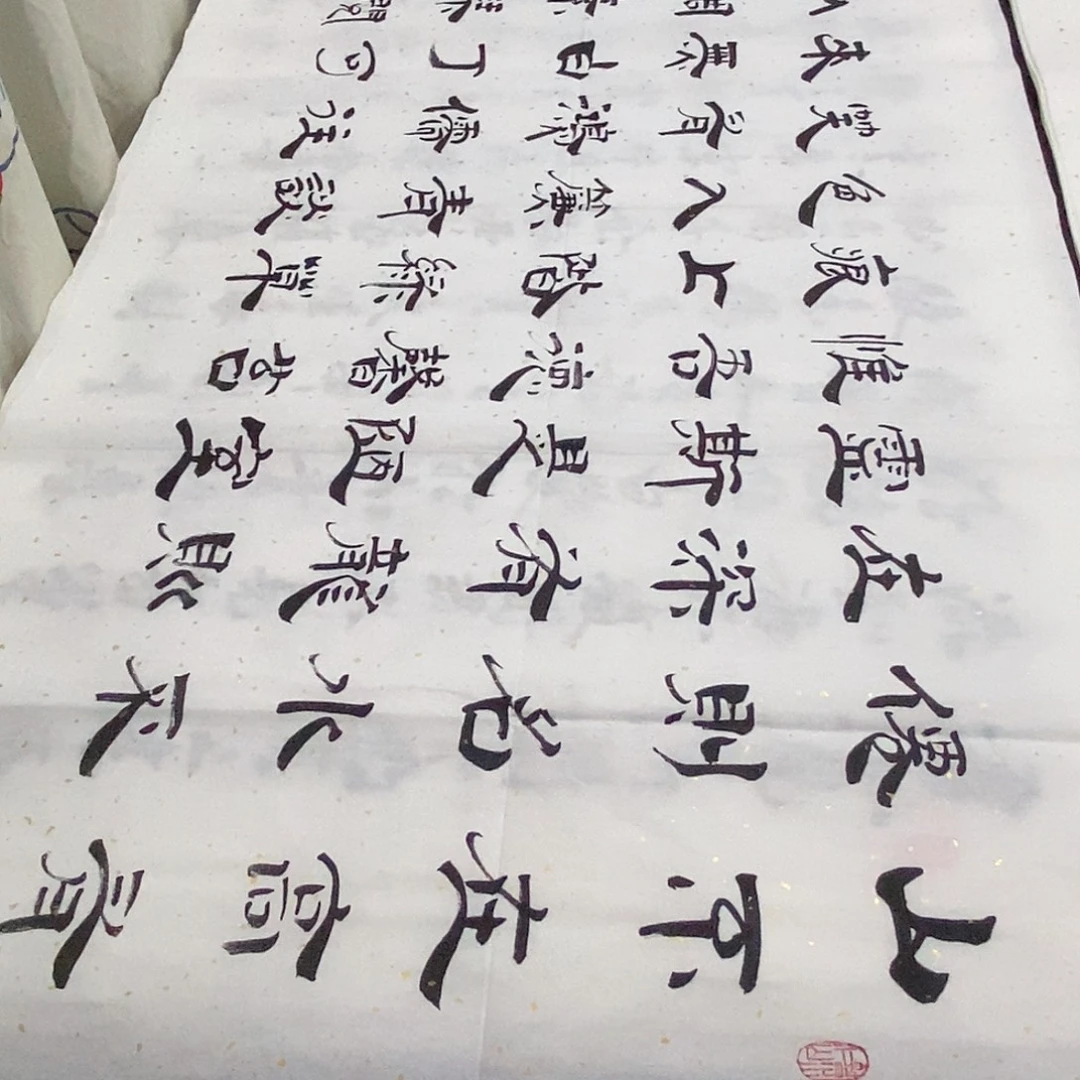 山不在高有
僊則名水不
在深有龍則
靈斯是陋室
惟吾德馨苔
痕上階綠草
色入簾青談
笑有鴻儒往
來無白丁可